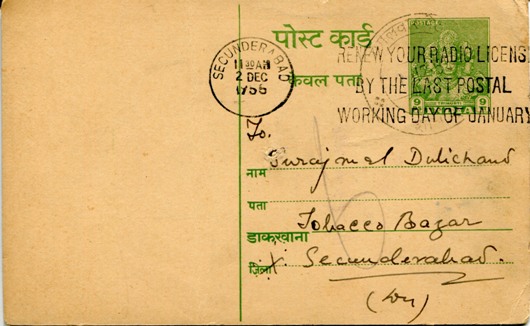 पोस्ट कार्ड
केवल पता
SECUNDERABAD
11 30 AM
2 DEC
1956
RENEW YOUR RADIO LICENS
BY THE LAST POSTAL
WORKING DAY OF JANUARY
POSTAGE
9 9
To.
Surajmal Dulichand
नाम
पता
Tobacco Bazar
डाकखाना
जिला
Secunderabad.
(Dn)